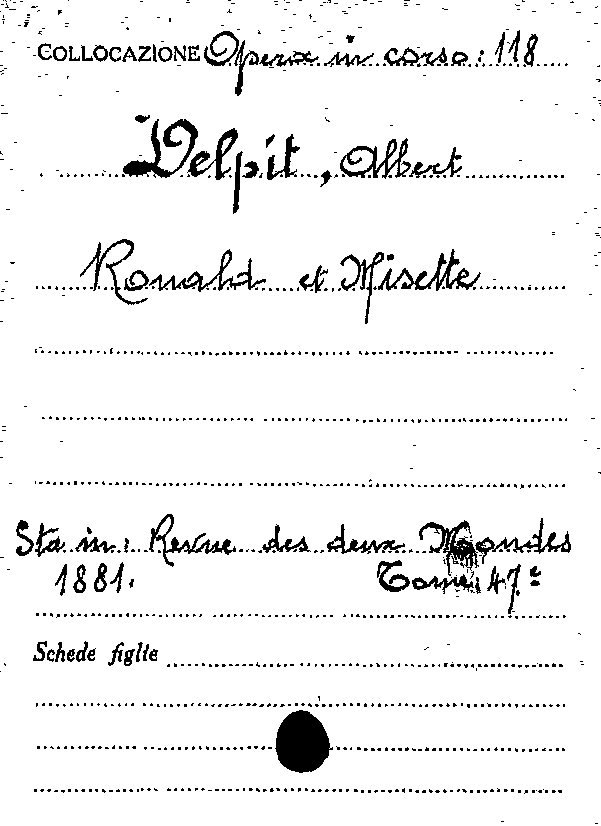 COLLOCAZIONE Opera in corso: 118
Delpit, Albert
Ronald et Misette
Sta in: Revue des deux Mondes
1881. Tome: 47.e
Schede figlie